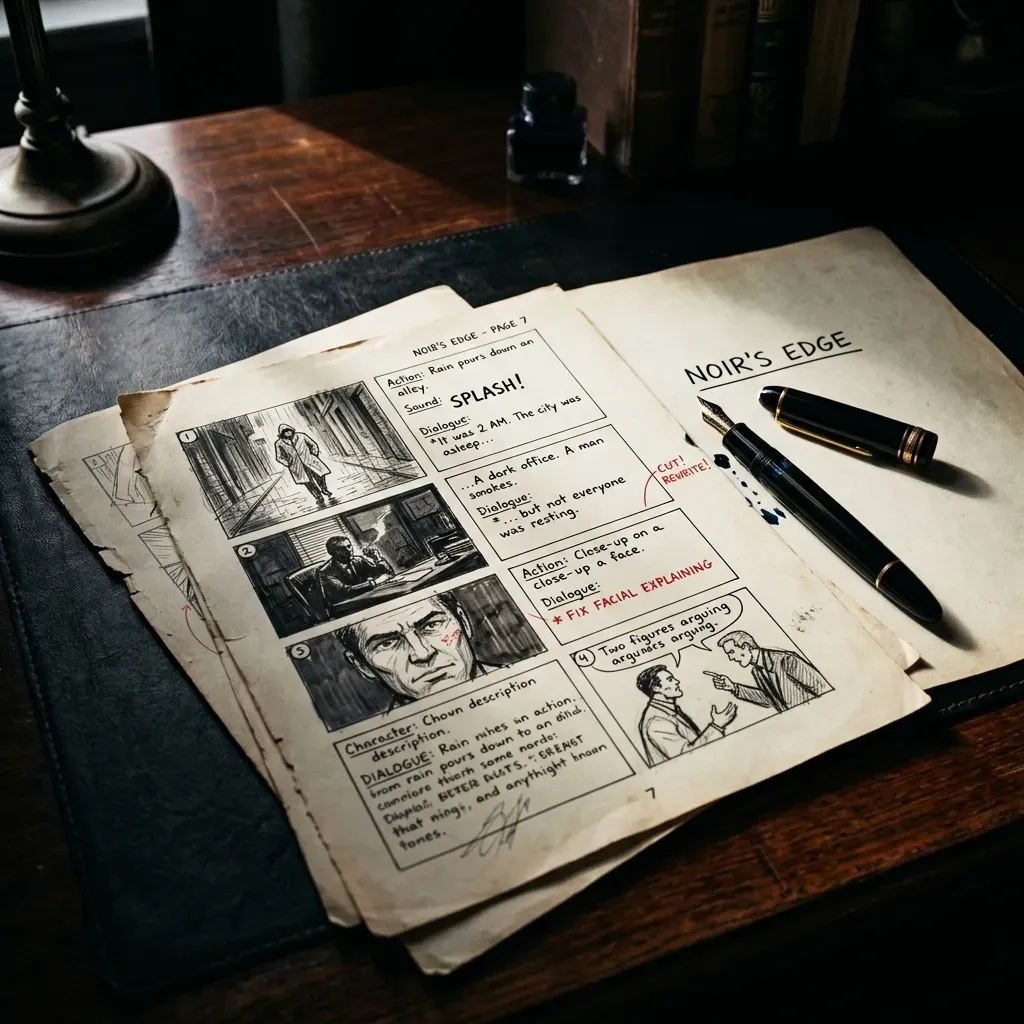 NOIR'S EDGE - PAGE 7
1
Action: Rain pours down an
alley.
Sound: SPLASH!
Dialogue:
"It was 2 AM. The city was
asleep...
2
...A dark office. A man
smokes.
Dialogue:
"... but not everyone
was resting.
CUT!
REWRITE!
Action: Close-up on a
close-up a face.
Dialogue:
* FIX FACIAL EXPLAINING
4
Two figures arguing
arguing.
Character: Chown description
description.
DIALOGUE: Rain in action.
from rain pours down to an
some
that and
tones.
7
NOIR'S EDGE